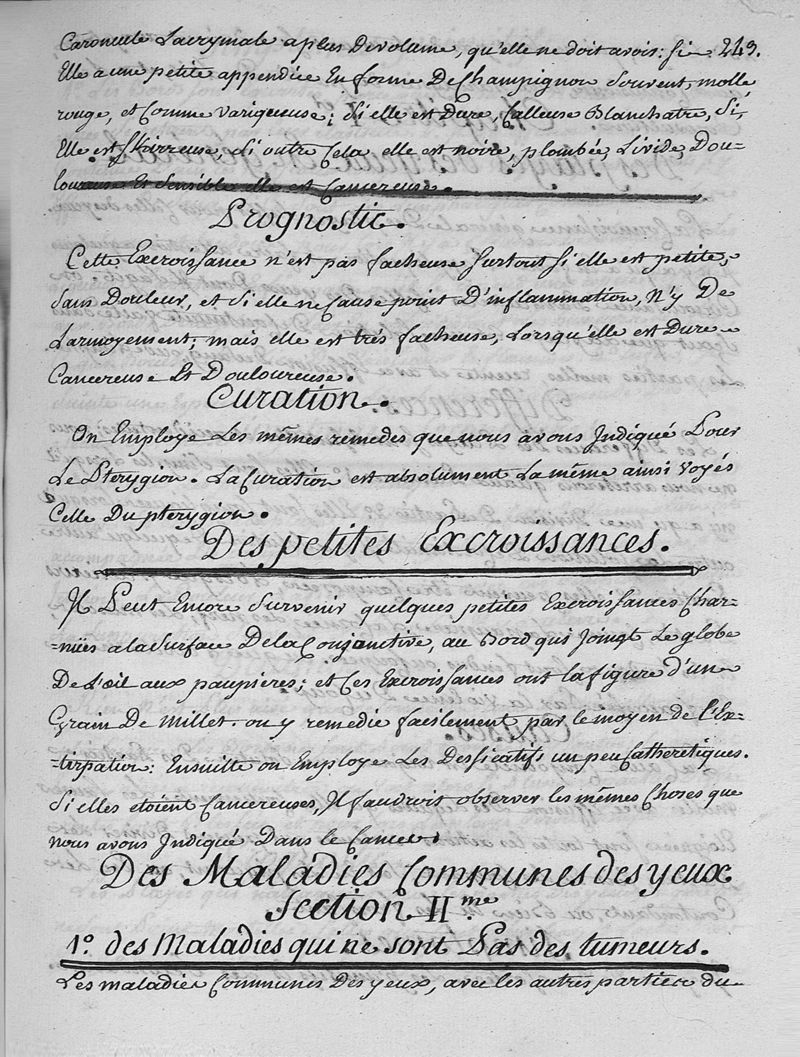 Caroncule Lacrymale a plus De volume, qu'elle ne doit avoir: si 249.
Elle a une petite appendice En forme De Champignon souvent, molle
rouge, et Comme variqueuse; si elle est Dure, Calleuse Blanchatre, si,
Elle est skirreuse, si outre Cela elle est noire, plombée, Livide, Dou=
loureuse Et sensible elle est Cancereuse.
Prognostic.
Cette Excroissance n'est pas facheuse surtout si elle est petite,
sans Douleur, et si elle ne Cause point D'inflammation, n'y De
Larmoyement; mais elle est trés facheuse, Lorsqu'elle est Dure
Cancereuse Et Douloureuse.
Curation.
On Employe Les mêmes remedes que nous avons Indiqué Pour
Le Pterygion. La Curation est absolument La même ainsi voyés
Celle Du pterygion.
Des petites Excroissances.
Il Peut Encore survenir quelques petites Excroissances Char=
=nuës a la surface De la Conjonctive, au Bord qui joingt Le globe
De L'œil aux paupières; et Ces Excroissances ont la figure d'un
Grain De Millet. on y remedie facilement par le moyen de l'Ex=
=tirpation: Ensuitte on Employe Les Dessicatifs un peu Catheretiques.
Si elles etoient Cancereuses, Il faudroit observer les mêmes Choses que
nous avons Indiqué Dans le Cancer.
Des Maladies Communes des yeux
Section II.me
1.º des Maladies qui ne sont Pas des tumeurs.
Les maladies Communes Des yeux, avec les autres parties du